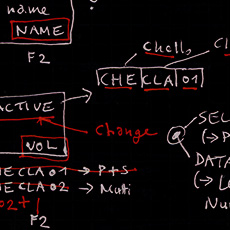 name
NAME
F2
Chell,
CHE CLA 01
ACTIVE
change
VOL
SEL
(→ P
@
DATA
(→ L
Nu
ECLA01 → P+S
ECLA02 → Multi
02+
F2